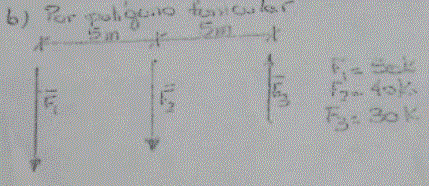 b) Por poligono funicular
5m 5m
F₁ F₂ F₃
F₁ = 50k
F₂ = 40k
F₃ = 30k